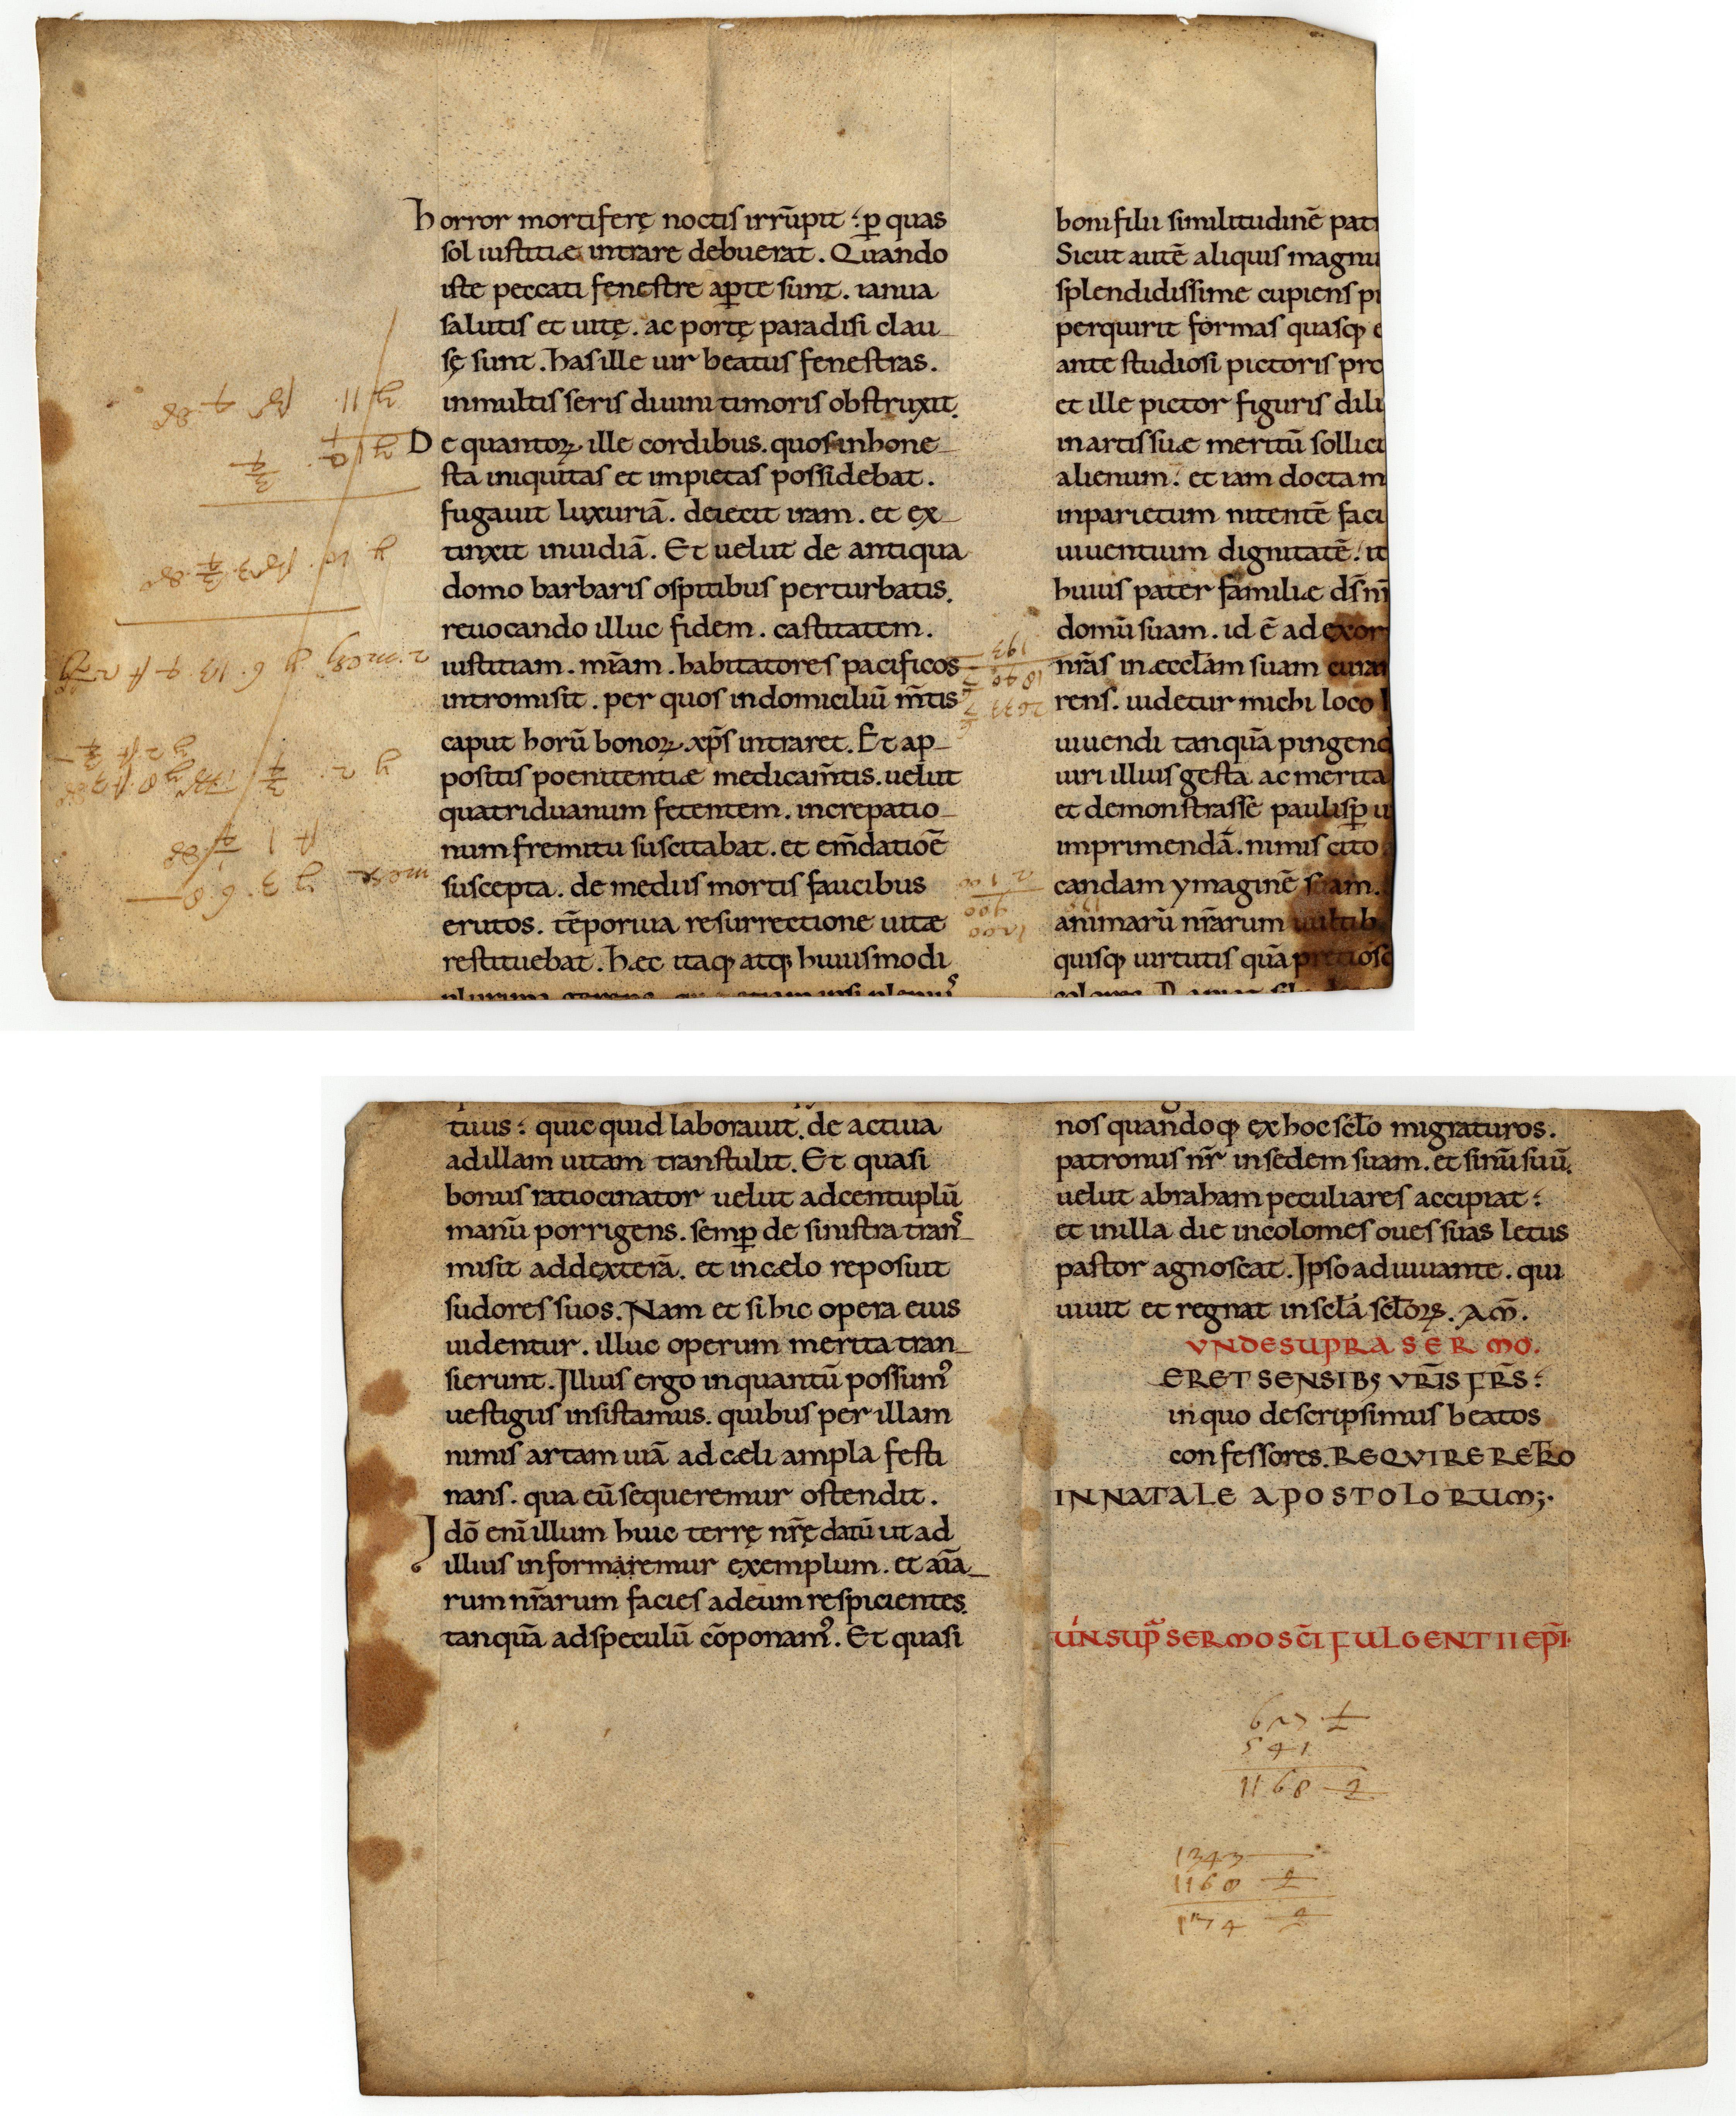 horror mortiferę noctis irrūpit : ꝑ quas
sol iustitiæ intrare debuerat. Quando
iste peccati fenestre aꝑte sunt. ianua
salutis et uitę. ac portę paradisi clau-
sę sunt. has ille uir beatus fenestras.
inmultis seris diuini timoris obstruxit.
De quantoꝝ ille cordibus. quos inhone-
sta iniquitas et impietas possidebat.
fugauit luxuriā. deiecit iram. et ex-
tinxit inuidiā. Et uelut de antiqua
domo barbaris ospitibus perturbatis.
reuocando illuc fidem. castitatem.
iustitiam. mīam. habitatores pacificos
intromisit. per quos in domiciliū m̄tis
caput horū bonoꝝ. xp̄s intraret. Et ap-
positis poenitentiæ medicam̄tis. uelut
quatriduanum fetentem. increpatio-
num fremitu suscitabat. et em̄datiōē
suscepta. de mediis mortis faucibus
erutos. tēporiua resurrectione uitæ
restituebat. hæc itaqꝫ atqꝫ huiusmodi
boni filii similitudinē pat
Sicut autē aliquis magnu
splendidissime cupiens p
perquirit formas quasqꝫ e
ante studiosi pictoris pro
et ille pictor figuris dili
in artis suæ meritū sollici
alienum : et iam doctam
inparietum nitentē faci
uiuentium dignitatē : it
huius pater familiæ dn̄s nī
domū suam. id ē ad exor
nr̄as in æccl̄am suam curat
rens. uidetur michi loco
uiuendi tanquā pingend
uiri illius gesta ac merita
et demonstrasse paulisꝑ u
imprimendā. nimis cito
candam ymaginē suam.
animarū nr̄arum uultib
quisqꝫ uirtutis quā pretios
193
1840
2033
2100
900
1200
tiuis : quicquid laborauit. de actiua
ad illam uitam transtulit. Et quasi
bonus ratiocinator uelut adcentuplū
manū porrigens. semꝑ de sinistra trans-
misit addexterā. et incælo reposuit
sudores suos. Nam et si hic opera eius
uidentur. illuc operum merita tran-
sierunt. Illius ergo inquantū possum᾽
uestigiis insistamus. quibus per illam
nimis artam uiā ad cæli ampla festi
nans. qua eū sequeremur ostendit.
Idō enī illum huic terrę nr̄ę datū ut ad
illius informaremur exemplum. et aīa-
rum nr̄arum facies ad eum respicientes.
tanquā ad speculū cōponam᾽. Et quasi
nos quandoqꝫ ex hoc scl̄o migraturos.
patronus nr̄ in sedem suam. et sinū suū.
uelut abraham peculiares accipiat :
et inilla die incolomes oues suas letus
pastor agnoscat. Ipso adiuuante. qui
uiuit et regnat in scl̄a scl̄oꝝ. AM̄.
VNDE SUPRA SERMO.
ERET SENSIBꝫ VR̄IS FR̄S :
in quo descripsimus beatos
confessores. REQVIRE RETRO
IN NATALE APOSTOLORUM;.
UN̄ SUP̄ SERMO SC̄I FULGENTII EP̄I.
627 ½
541
1168 ½
1343
1168 ½
174 ½